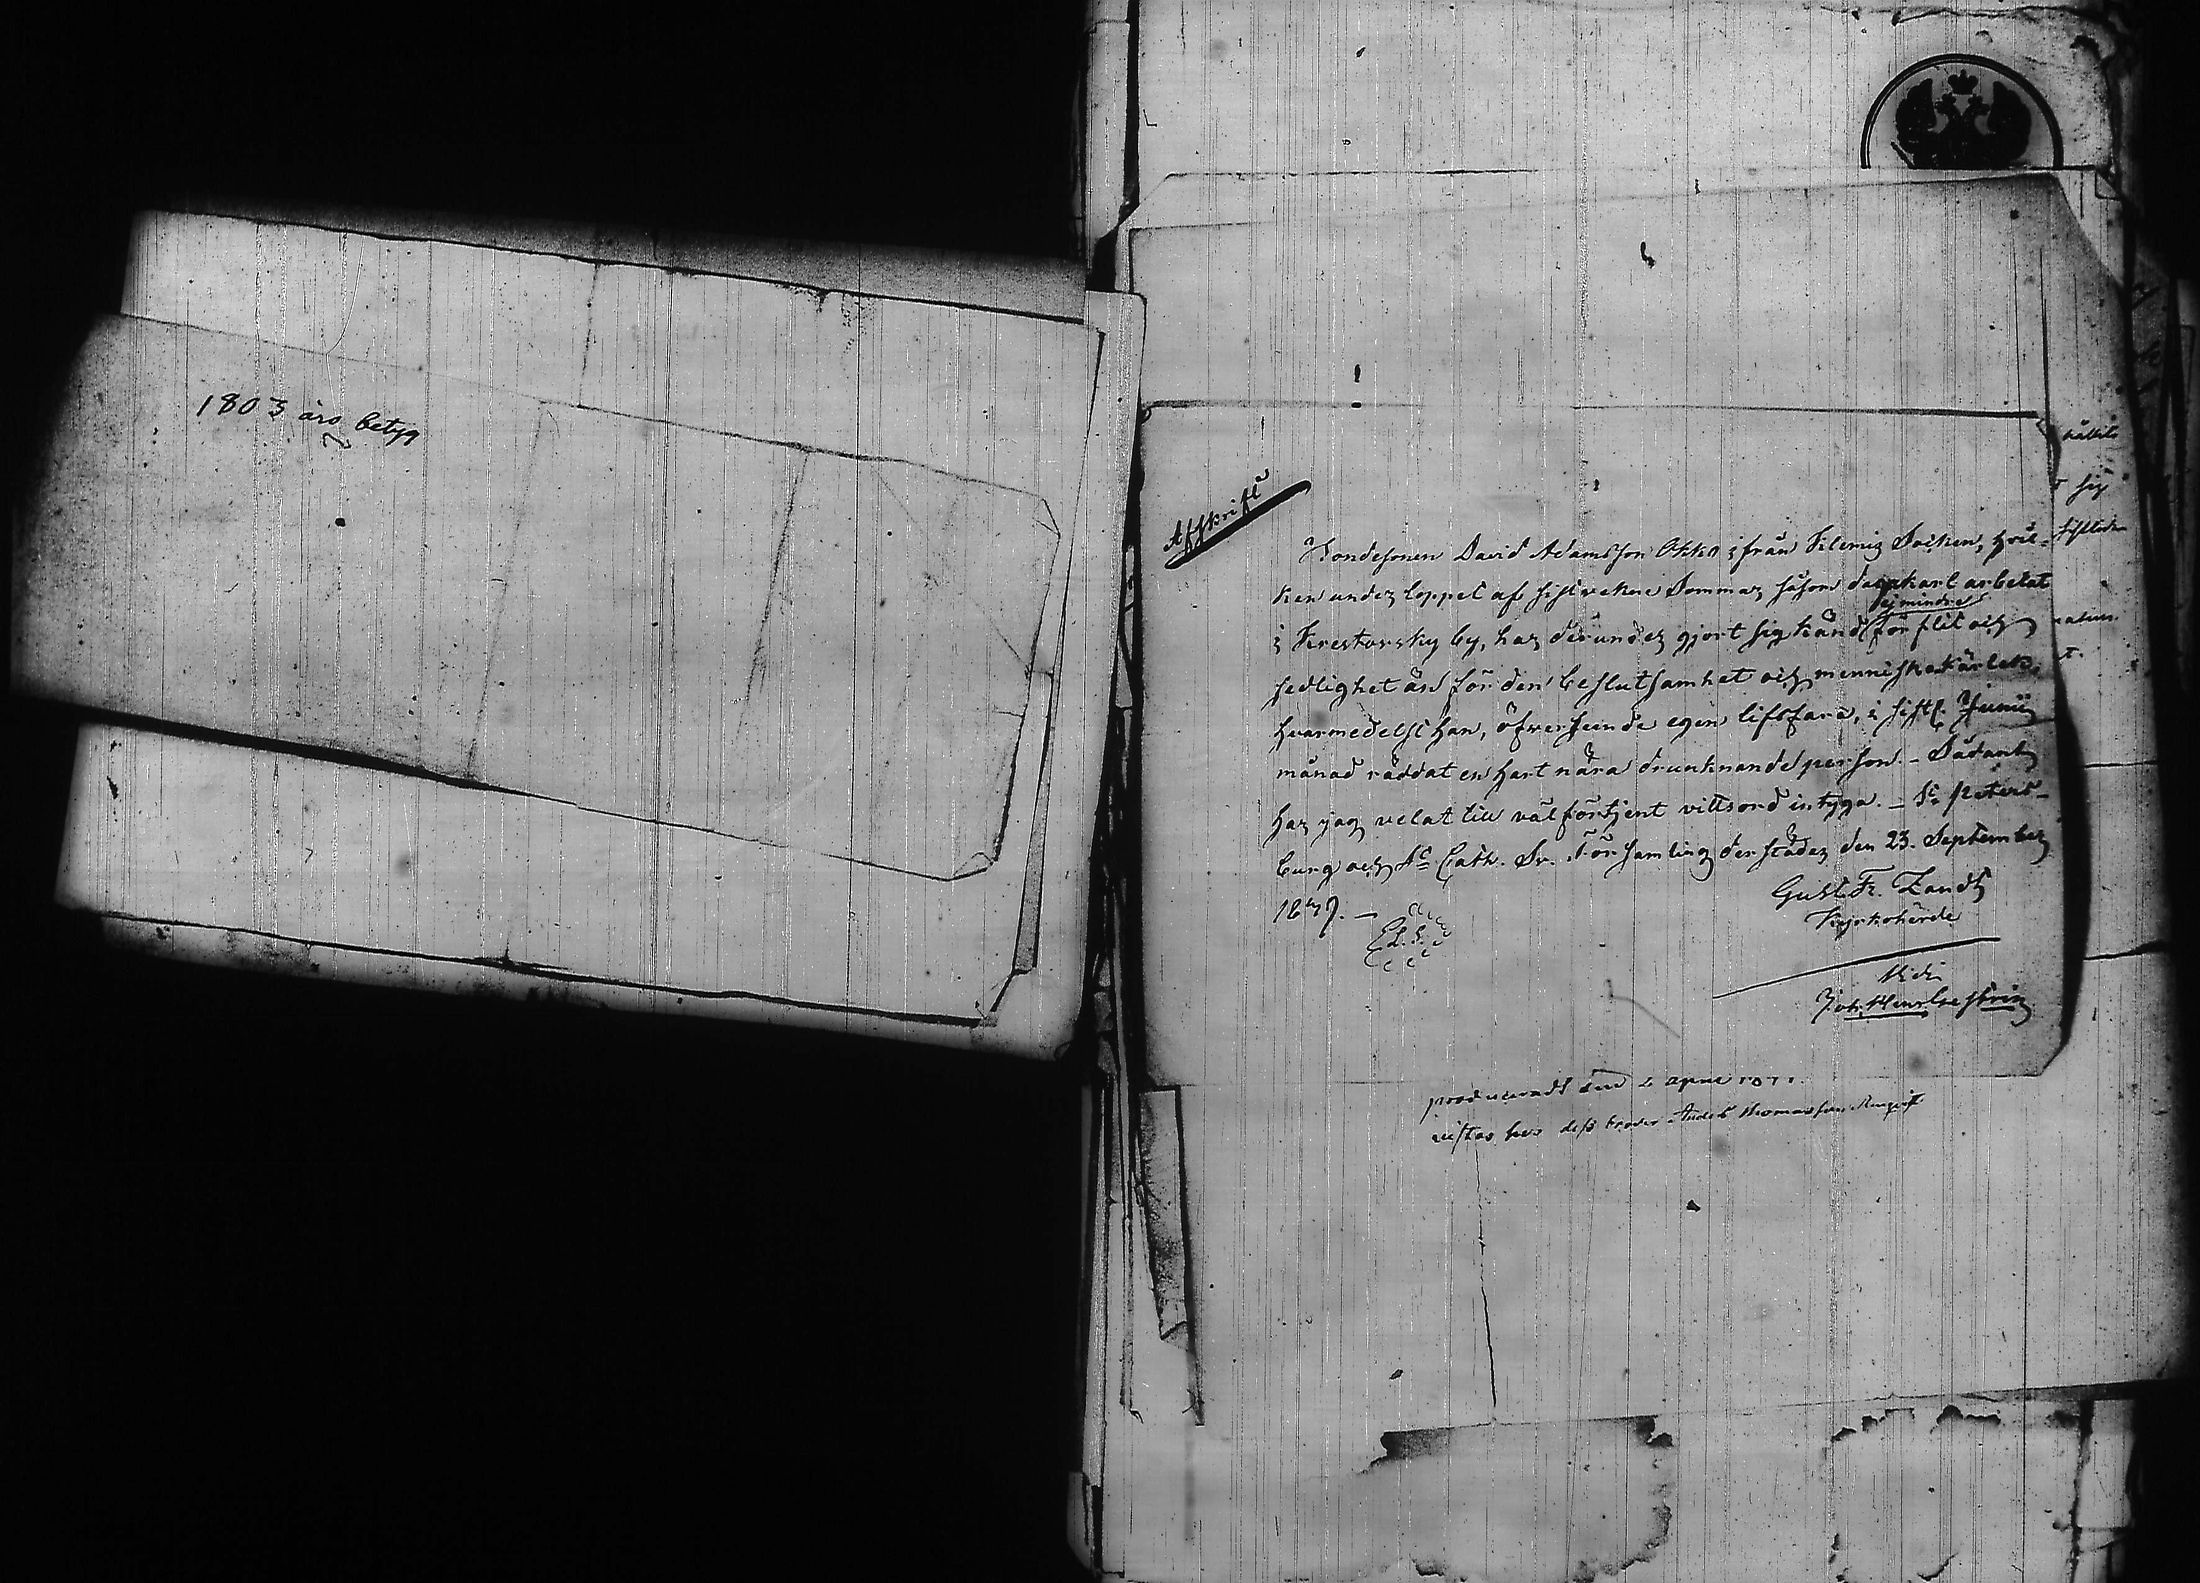 1803 års betyg
Afskrift
Bondesonen David Adamsson Okko ifrån Socken, hvil-
ken under loppet af sistvekne Sommar såsom dagakarl arbetat
i Krestovsky by, har derunder gjort sig känd ej mindre för flit och
sedlighet än för den beslutsamhet och menniskokärlek,
hvarmedelst han, öfverseende egen lifsfara, i sistl. Junii
månad räddat en hart nära drunknande person. – Sådant
har jag velat till välförtjent vittsord intyga. – St. Peters-
burg och St. Cath. Sv. Församling derstädes den 23. September
1847. –
(L.S.)
Gust. Fr. Zandt
Kyrkoherde
Vidi
Joh. Henr.
produceradt den 2 April
vistas hos dess broder Anders Thomasson
sig